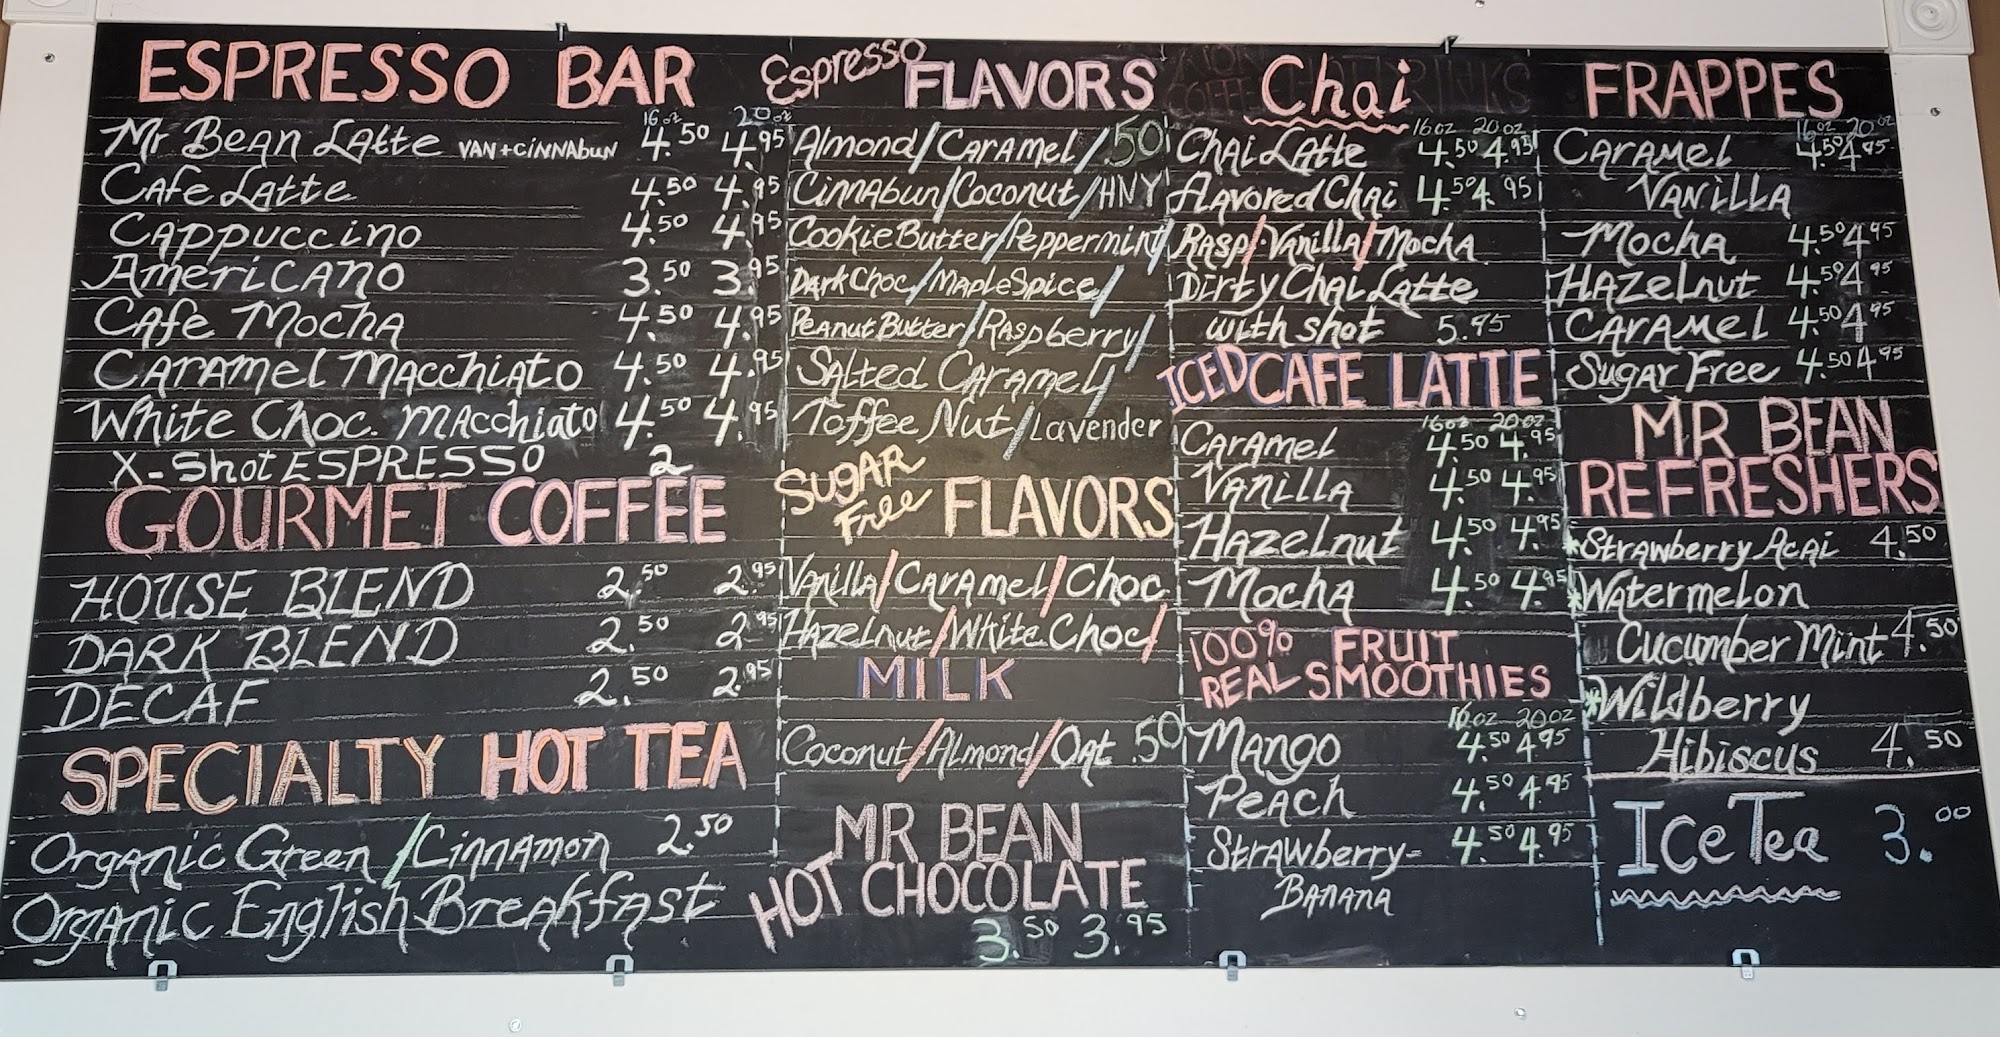 ESPRESSO BAR
16oz 20oz
Mr Bean Latte VAN+CINNABUN 4.50 4.95
Cafe Latte 4.50 4.95
Cappuccino 4.50 4.95
Americano 3.50 3.95
Cafe Mocha 4.50 4.95
Caramel Macchiato 4.50 4.95
White Choc. Macchiato 4.50 4.95
X-Shot ESPRESSO 2
GOURMET COFFEE
HOUSE BLEND 2.50 2.95
DARK BLEND 2.50 2.95
DECAF 2.50 2.95
SPECIALTY HOT TEA
Organic Green/Cinnamon 2.50
Organic English Breakfast
Espresso FLAVORS
Almond/Caramel/.50
Cinnabun/Coconut/HNY
Cookie Butter/Peppermint/
Dark Choc/Maple Spice/
Peanut Butter/Raspberry/
Salted Caramel/
Toffee Nut/Lavender
SUGAR Free FLAVORS
Vanilla/Caramel/Choc
Hazelnut/White Choc/
MILK
Coconut/Almond/Oat .50
MR BEAN
HOT CHOCOLATE
3.50 3.95
Chai
16oz 20oz
Chai Latte 4.50 4.95
flavored Chai 4.50 4.95
Rasp/Vanilla/Mocha
Dirty Chai Latte
with shot 5.95
ICED CAFE LATTE
16oz 20oz
Caramel 4.50 4.95
Vanilla 4.50 4.95
Hazelnut 4.50 4.95
Mocha 4.50 4.95
100% FRUIT
REAL SMOOTHIES
16oz 20oz
Mango 4.50 4.95
Peach 4.50 4.95
Strawberry- 4.50 4.95
Banana
FRAPPES
16oz 20oz
Caramel 4.50 4.95
Vanilla
Mocha 4.50 4.95
Hazelnut 4.50 4.95
Caramel 4.50 4.95
Sugar Free 4.50 4.95
MR BEAN
REFRESHERS
*Strawberry Acai 4.50
*Watermelon
Cucumber Mint 4.50
*Wildberry
Hibiscus 4.50
Ice Tea 3.00